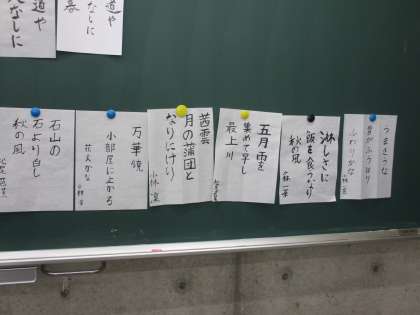 道や
なしに
暮
道や
なしに
うまさうな
雪がふうはり
ふわりかな
一茶
淋しさに
飯を食ふなり
秋の風
一茶
五月雨を
集めて早し
最上川
茜雲
月の蒲団と
なりにけり
小林 凜
万華鏡
小部屋に上がる
花火かな
石山の
石より白し
秋の風
松尾芭蕉